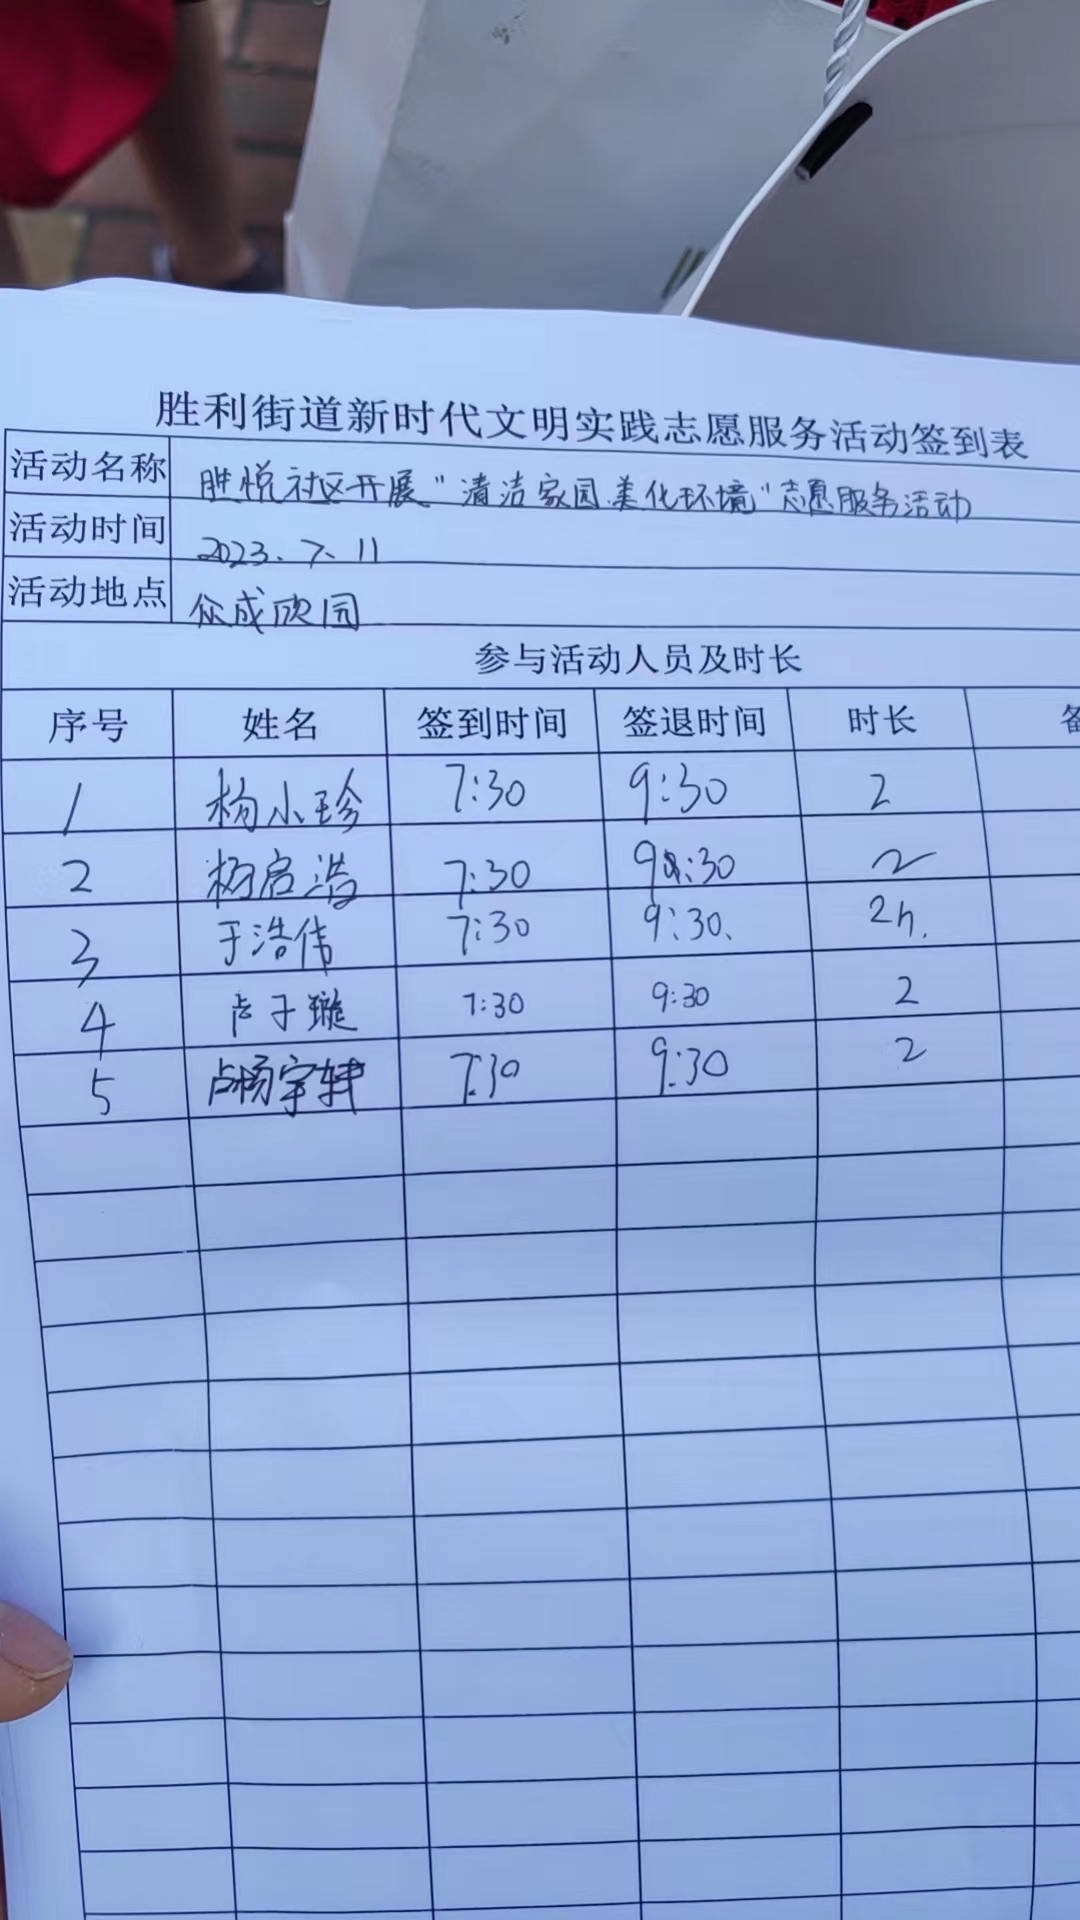 胜利街道新时代文明实践志愿服务活动签到表
活动名称 胜悦社区开展"清洁家园美化环境"志愿服务活动
活动时间 2023.7.11
活动地点 众成欣园
参与活动人员及时长
序号 姓名 签到时间 签退时间 时长 备
1 杨小珍 7:30 9:30 2
2 杨启浩 7:30 9:30 2
3 于浩伟 7:30 9:30. 2h.
4 卢子璇 7:30 9:30 2
5 卢杨宇轩 7:30 9:30 2